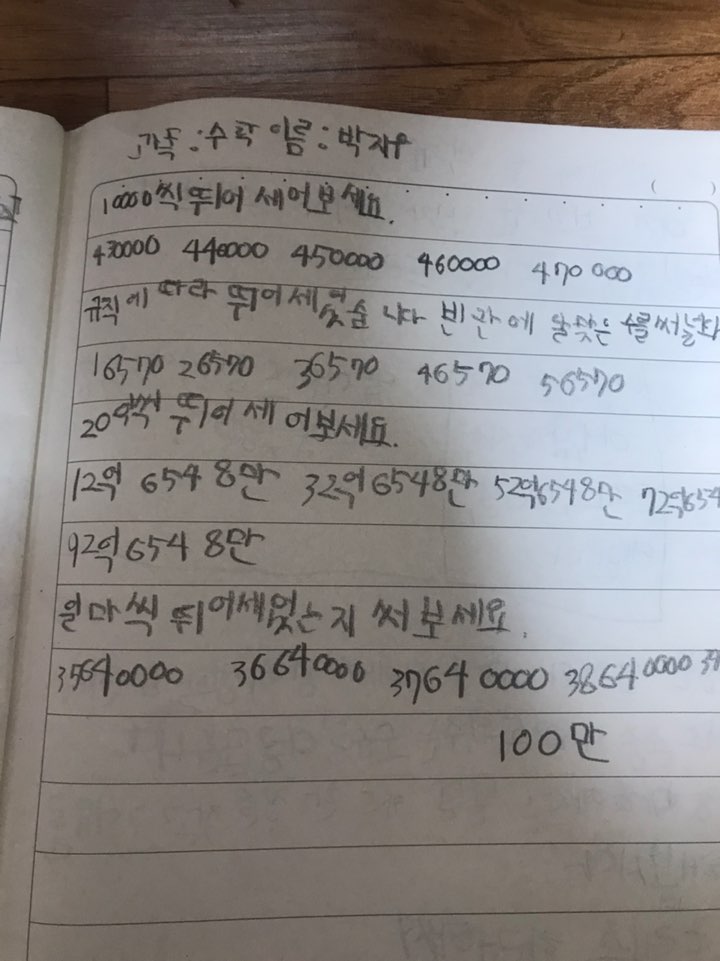 과목:수학 이름:박지우
( )
10000씩 뛰어 세어보세요.
430000 440000 450000 460000 470000
규칙에 따라 뛰어세었습니다 빈칸에 알맞은 수를써넣
16570 26570 36570 46570 56570
20억씩 뛰어 세어보세요.
12억 6548만 32억6548만 52억6548만 72억654
92억6548만
얼마씩 뛰어세었는지 써보세요.
35640000 36640000 37640000 38640000 39
100만